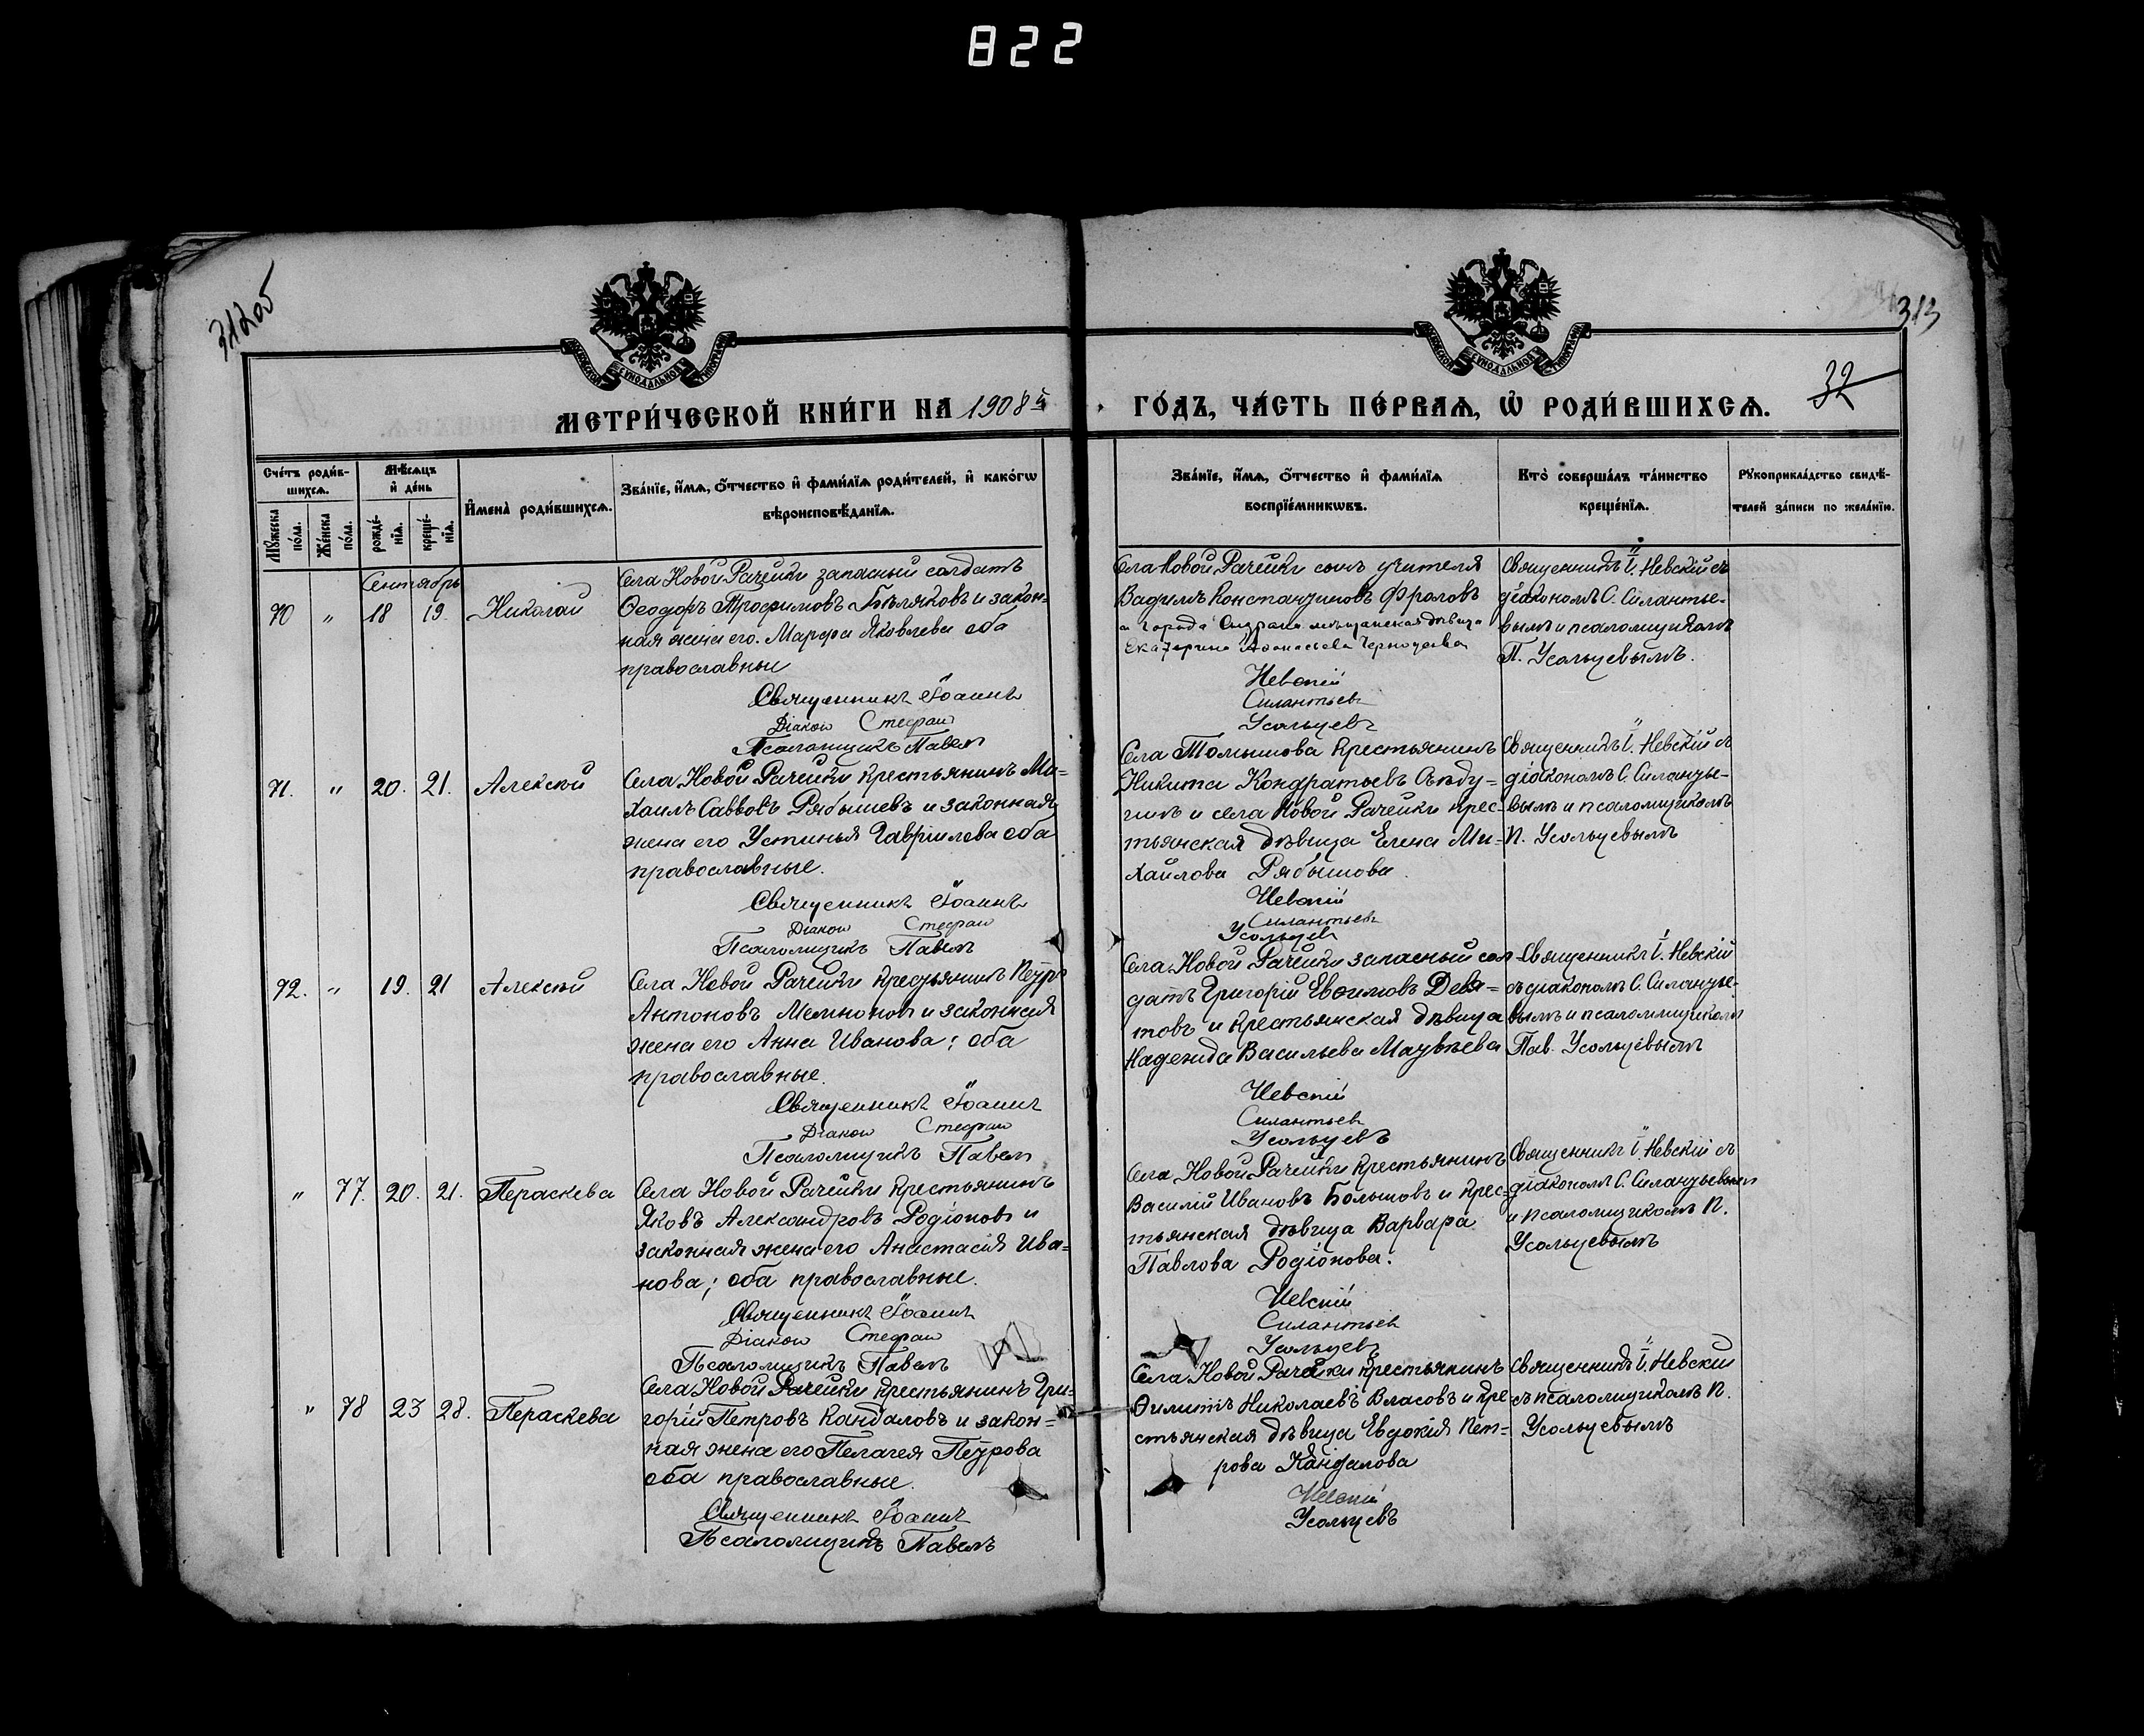 822
312 об
313
32
МЕТРИ́ЧЕСКОЙ КНИ́ГИ НА 1908 й
ГО́ДЪ, ЧА́СТЬ ПЕ́РВАѦ, Ѽ РОДИ́ВШИХСѦ.
Сче́тъ роди́в-
шихсѧ.
Мꙋ́жеска по́ла.
Же́нска по́ла.
Мѣ́сѧцъ
и҆ де́нь
рожде́-
нїѧ.
креще́-
нїѧ.
И҆мена̀ роди́вшихсѧ.
Зва́нїе, и҆́мѧ, ѻ҆́тчество и҆ фами́лїѧ роди́телей, и҆ како́гѡ
вѣроисповѣ́данїѧ.
Зва́нїе, и҆́мѧ, ѻ҆́тчество и҆ фами́лїѧ
воспрїе́мникѡвъ.
Кто̀ соверша́лъ та́инство
креще́нїѧ.
Рꙋкоприкла́дство свидѣ́-
телей за́писи по жела́нїю.
Сентябрь
70 " 18 19. Николай
Села Новой Рачейки запасный солдатъ
Ѳеодоръ Трофимовъ Бѣляковъ и закон-
ная жена его. Марѳа Яковлева оба
православны
Священникъ Іоаннъ
Діакон Стефан
Псаломщикъ Павелъ
Села Новой Рачейки сынъ учителя
Вадимъ Константиновъ Фроловъ
и города Сызрани мѣщанская дѣвица
Екатерина
Невскій
Силантьевъ
Усольцевъ
Священникъ І. Невскій съ
діакономъ С. Силантье-
вымъ и псаломщикомъ
П. Усольцевымъ.
71. " 20. 21. Алексѣй
Села Новой Рачейки крестьянинъ Ми-
хаилъ Саввовъ Рябышевъ и законная
жена его Устинья Гаврилова оба
православные.
Священникъ Іоаннъ
Діакон Стефан
Псаломщикъ Павелъ
Села Томышова крестьянинъ
Никита Кондратьевъ
и села Новой Рачейки крес-
тьянская дѣвица Елена Ми-
хайлова Рябышова.
Невскій
Силантьевъ
Усольцев
Священникъ І. Невскій съ
діакономъ С. Силантье-
вымъ и псаломщикомъ
П. Усольцевымъ
72. " 19. 21 Алексѣй
Села Новой Рачейки крестьянинъ Петръ
Антоновъ Мемноновъ и законная
жена его Анна Иванова; оба
православные.
Священникъ Іоаннъ
Діакон Стефан
Псаломщикъ Павелъ
Села Новой Рачейки запасный сол-
датъ Григорій Евѳимовъ Девя-
товъ и крестьянская дѣвица
Надежда Васильева Матвѣева
Невскій
Силантьевъ
Усольцевъ
Священникъ І. Невскій
съ діакономъ С. Силантье-
вымъ и псаломщикомъ
Пав. Усольцевымъ
" 77. 20. 21. Параскева
Села Новой Рачейки крестьянинъ
Яковъ Александровъ Родіоновъ и
законная жена его Анастасія Ива-
нова; оба православные.
Священникъ Іоаннъ
Діакон Стефан
Псаломщикъ Павелъ
Села Новой Рачейки крестьянинъ
Василій Ивановъ Большовъ и крес-
тьянская дѣвица Варвара
Павлова Родіонова.
Невскій
Силантьев
Усольцевъ
Священникъ І. Невскій съ
діакономъ С. Силантьевымъ
и псаломщикомъ П.
Усольцевымъ
" 78 23 28. Параскева
Села Новой Рачейки крестьянинъ Гри-
горій Петровъ Кандаловъ и закон-
ная жена его Пелагея Петрова
оба православные.
Священникъ Іоаннъ
Псаломщикъ Павелъ
Села Новой Рачейки крестьянинъ
Ѳилиппъ Николаевъ Власовъ и кре-
стьянская дѣвица Евдокія Пет-
рова Кандалова
Невскій
Усольцевъ
Священникъ І. Невскій
съ псаломщикомъ П.
Усольцевымъ